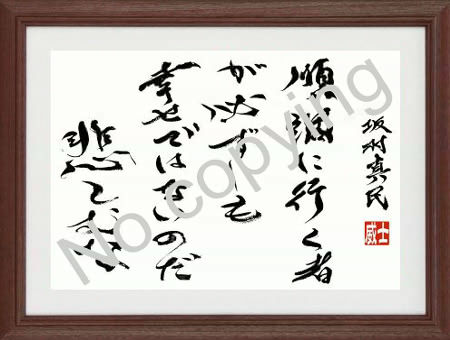 坂村真民
威士
順調に行く者
が必ずしも
幸せではないのだ
悲しむな
No copying